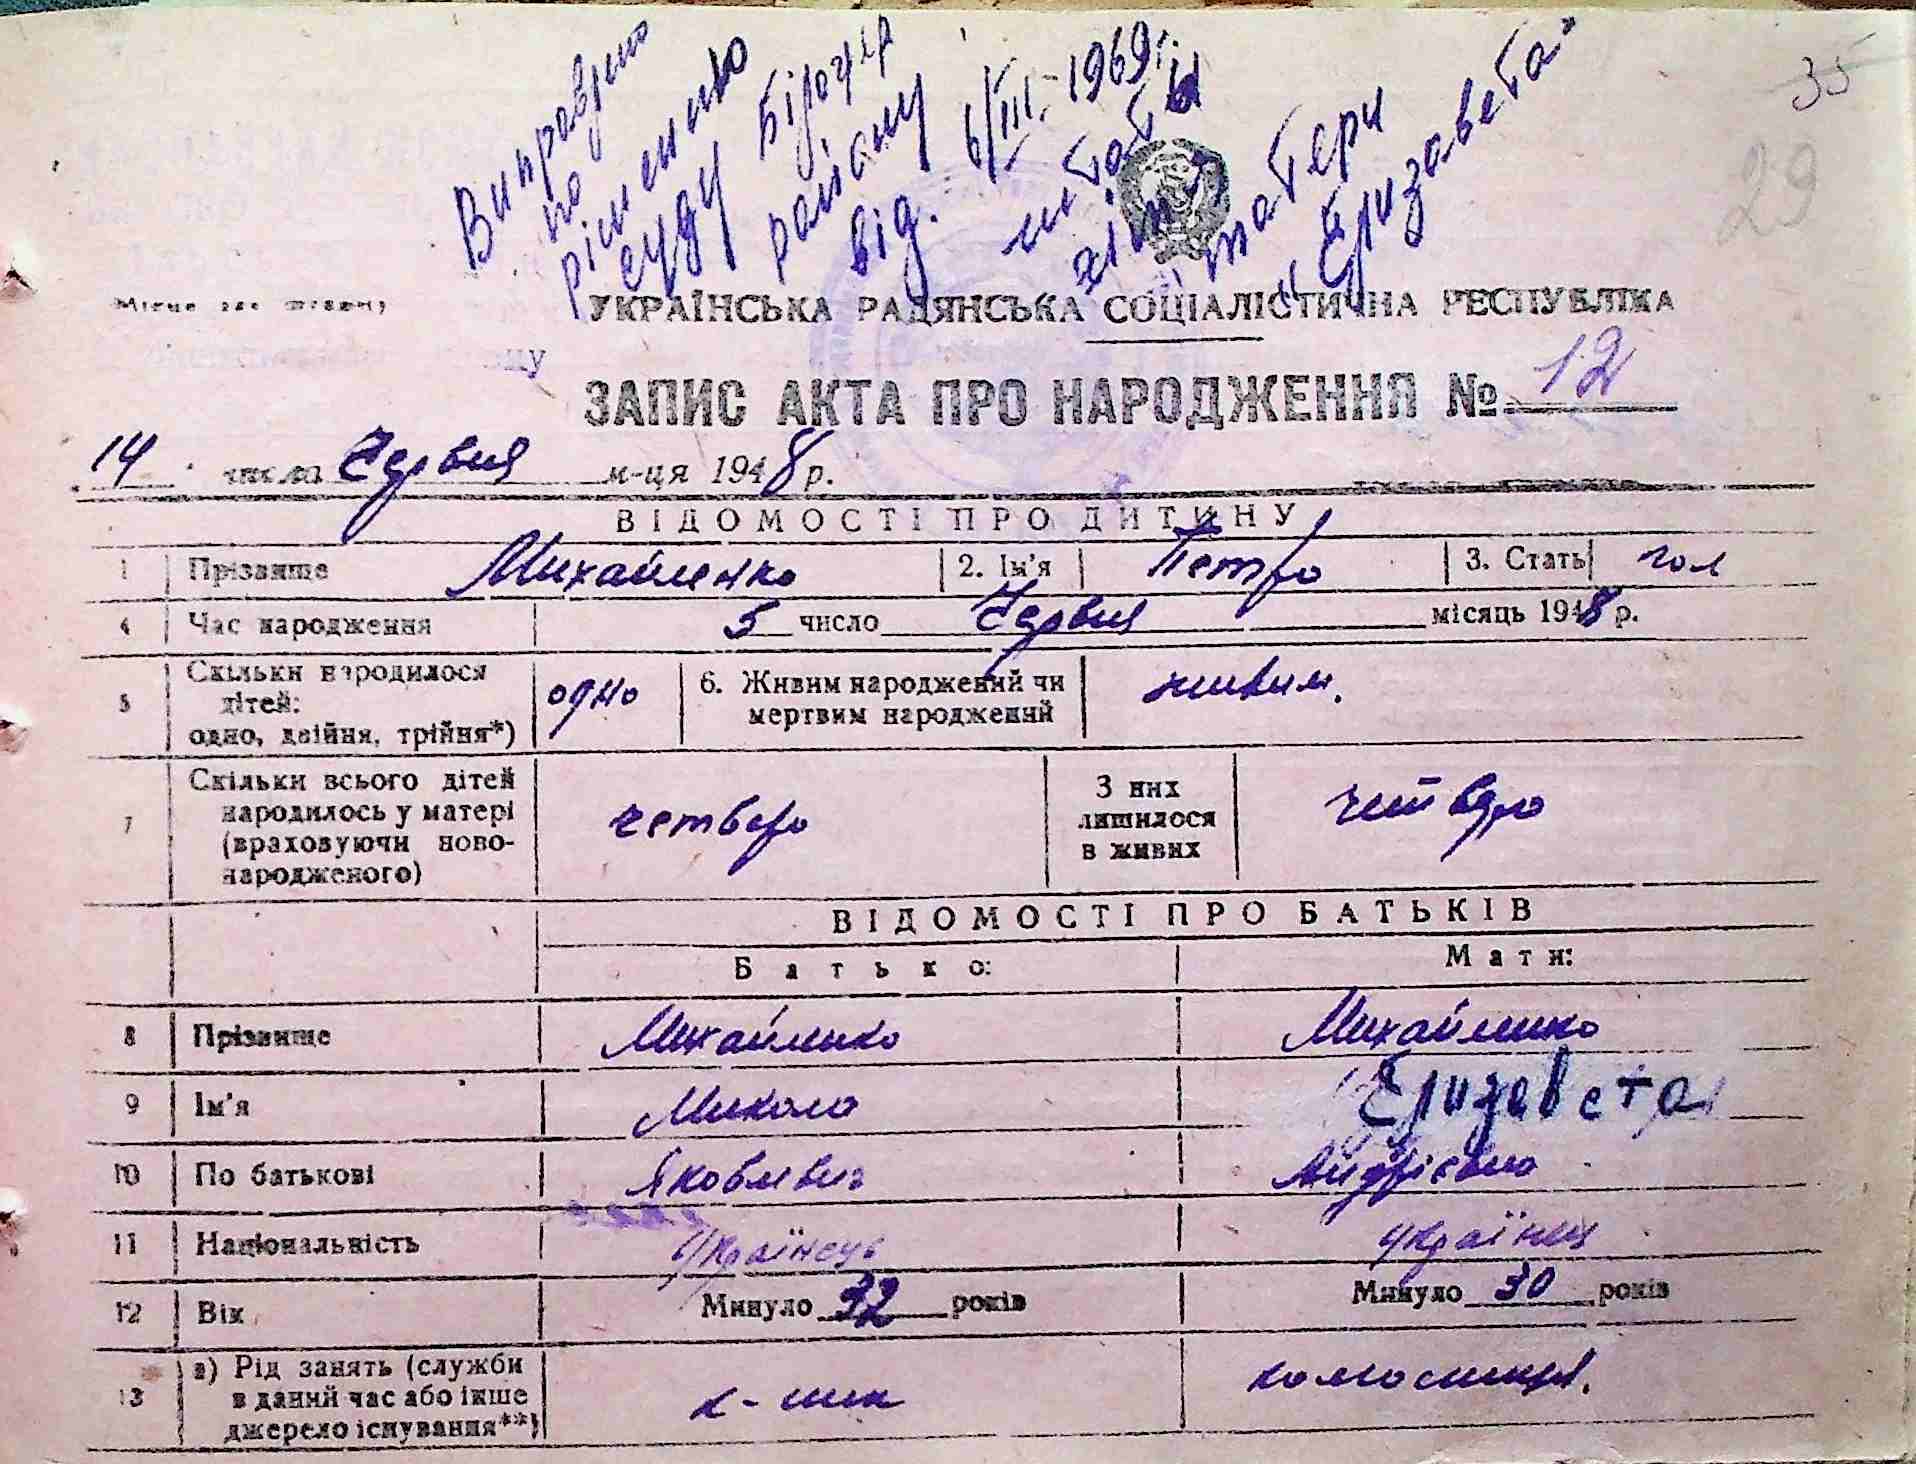 35
29
Виправлено
по
рішенню
суду Білоцер
району
від. 6/III-1969 г.
ім'я
матери
"Єлизавета"
УКРАЇНСЬКА РАДЯНСЬКА СОЦІАЛІСТИЧНА РЕСПУБЛІКА
ЗАПИС АКТА ПРО НАРОДЖЕННЯ № 12
14 числа Червня м-ця 1948 р.
ВІДОМОСТІ ПРО ДИТИНУ
1 Прізвище Михайленко 2. Ім'я Петро 3. Стать чол
4 Час народження 5 число Червня місяць 1948 р.
5 Скільки народилося дітей: одно, двійня, трійня*) одно 6. Живим народжений чи мертвим народжений живим.
7 Скільки всього дітей народилось у матері (враховуючи новонародженого) четверо З них лишилося в живих четверо
ВІДОМОСТІ ПРО БАТЬКІВ
Батько: Мати:
8 Прізвище Михайленко Михайленко
9 Ім'я Микола Єлизавета
10 По батькові Якович Андрієвна
11 Національність Українець українка
12 Вік Минуло 32 років Минуло 30 років
13 а) Рід занять (служби в даний час або інше джерело існування**) к-ник колгосниця.